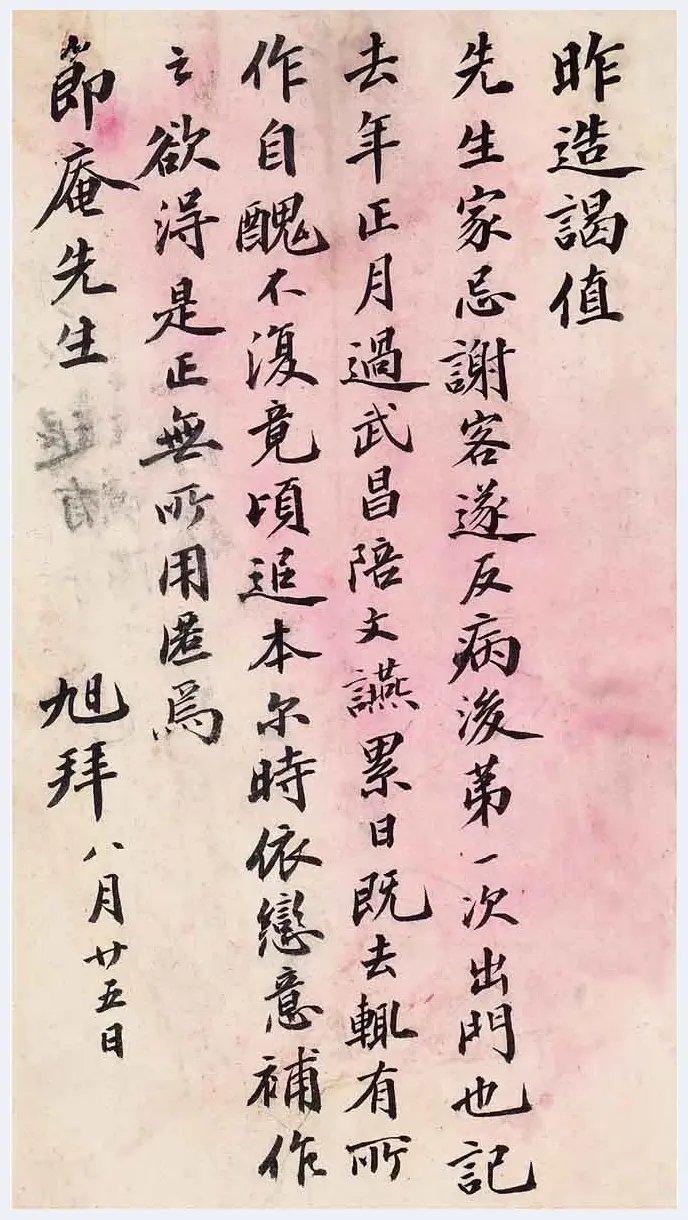 昨造謁值
先生家忌謝客遂反病後第一次出門也記
去年正月過武昌陪文讌累日既去輒有所
作自醜不復竟頃追本尒時依戀意補作
云欲得是正無所用匿為
節庵先生
旭拜八月廿五日